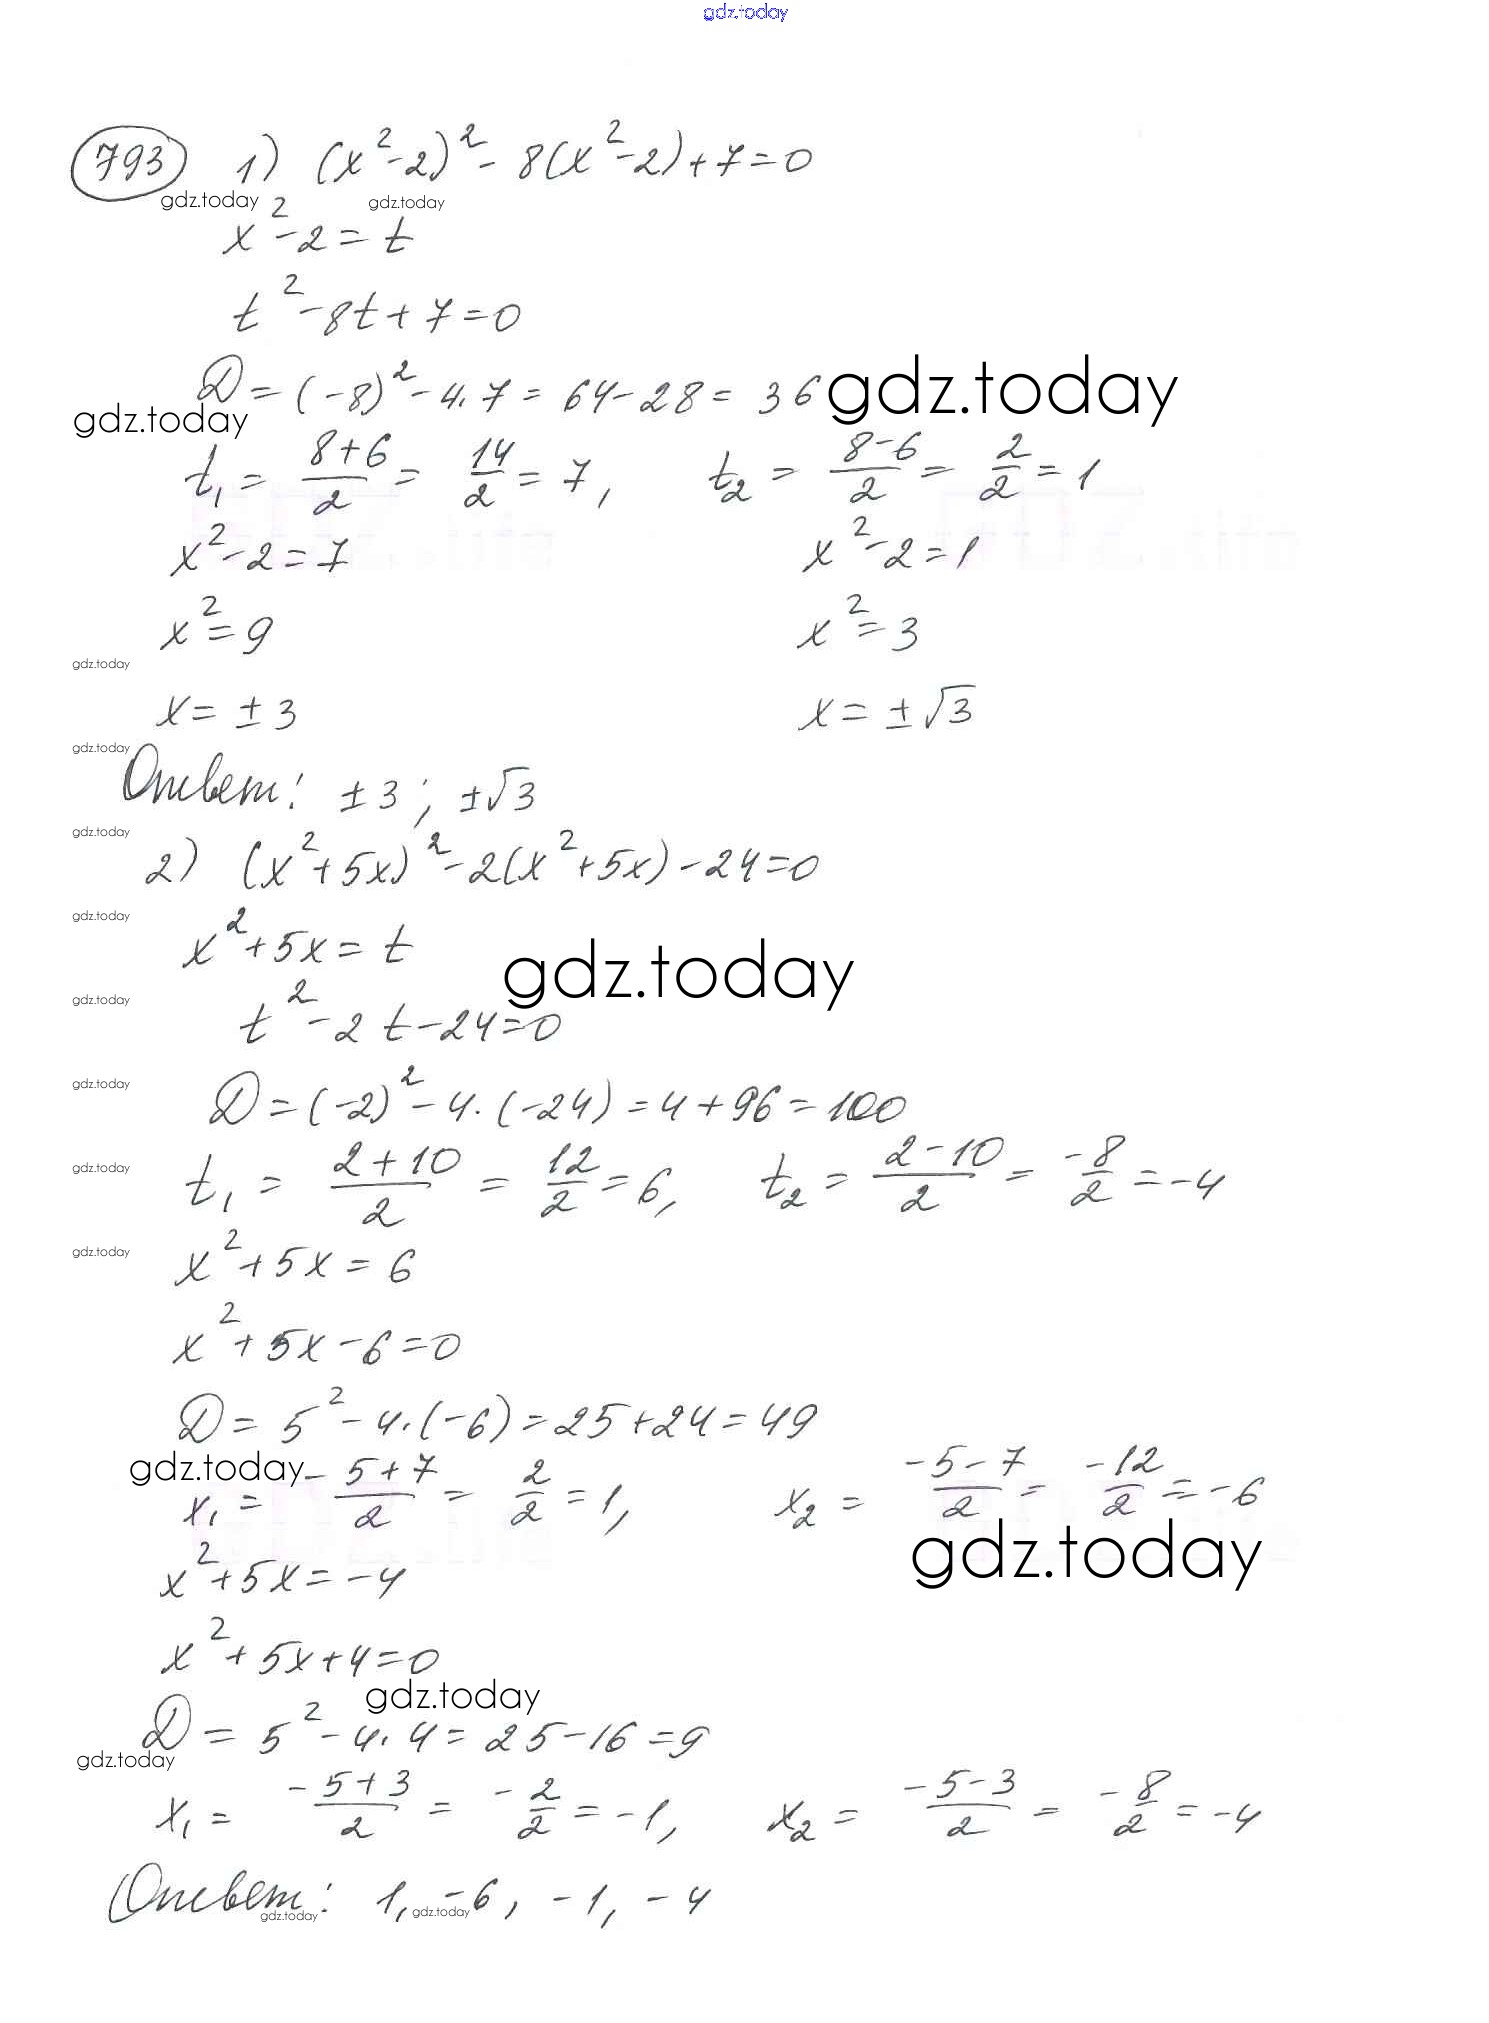 gdz.today
793 1) (x²-2)² - 8(x²-2)+7=0
gdz.today gdz.today
x²-2=t
t²-8t+7=0
D=(-8)²-4·7=64-28=36 gdz.today
gdz.today
t₁= (8+6)/2 = 14/2 = 7, t₂ = (8-6)/2 = 2/2 = 1
x²-2=7 x²-2=1
x²=9 x²=3
gdz.today
x=±3 x=±√3
gdz.today
Ответ: ±3; ±√3
gdz.today
2) (x²+5x)²-2(x²+5x)-24=0
gdz.today
x²+5x=t
gdz.today
gdz.today
t²-2t-24=0
gdz.today
D=(-2)²-4·(-24)=4+96=100
gdz.today
t₁ = (2+10)/2 = 12/2 = 6, t₂ = (2-10)/2 = -8/2 = -4
gdz.today
x²+5x=6
x²+5x-6=0
D=5²-4·(-6)=25+24=49
gdz.today
x₁ = (-5+7)/2 = 2/2 = 1, x₂ = (-5-7)/2 = -12/2 = -6
gdz.today
x²+5x=-4
x²+5x+4=0
gdz.today
D=5²-4·4=25-16=9
gdz.today
x₁ = (-5+3)/2 = -2/2 = -1, x₂ = (-5-3)/2 = -8/2 = -4
Ответ: 1, -6, -1, -4
gdz.today gdz.today